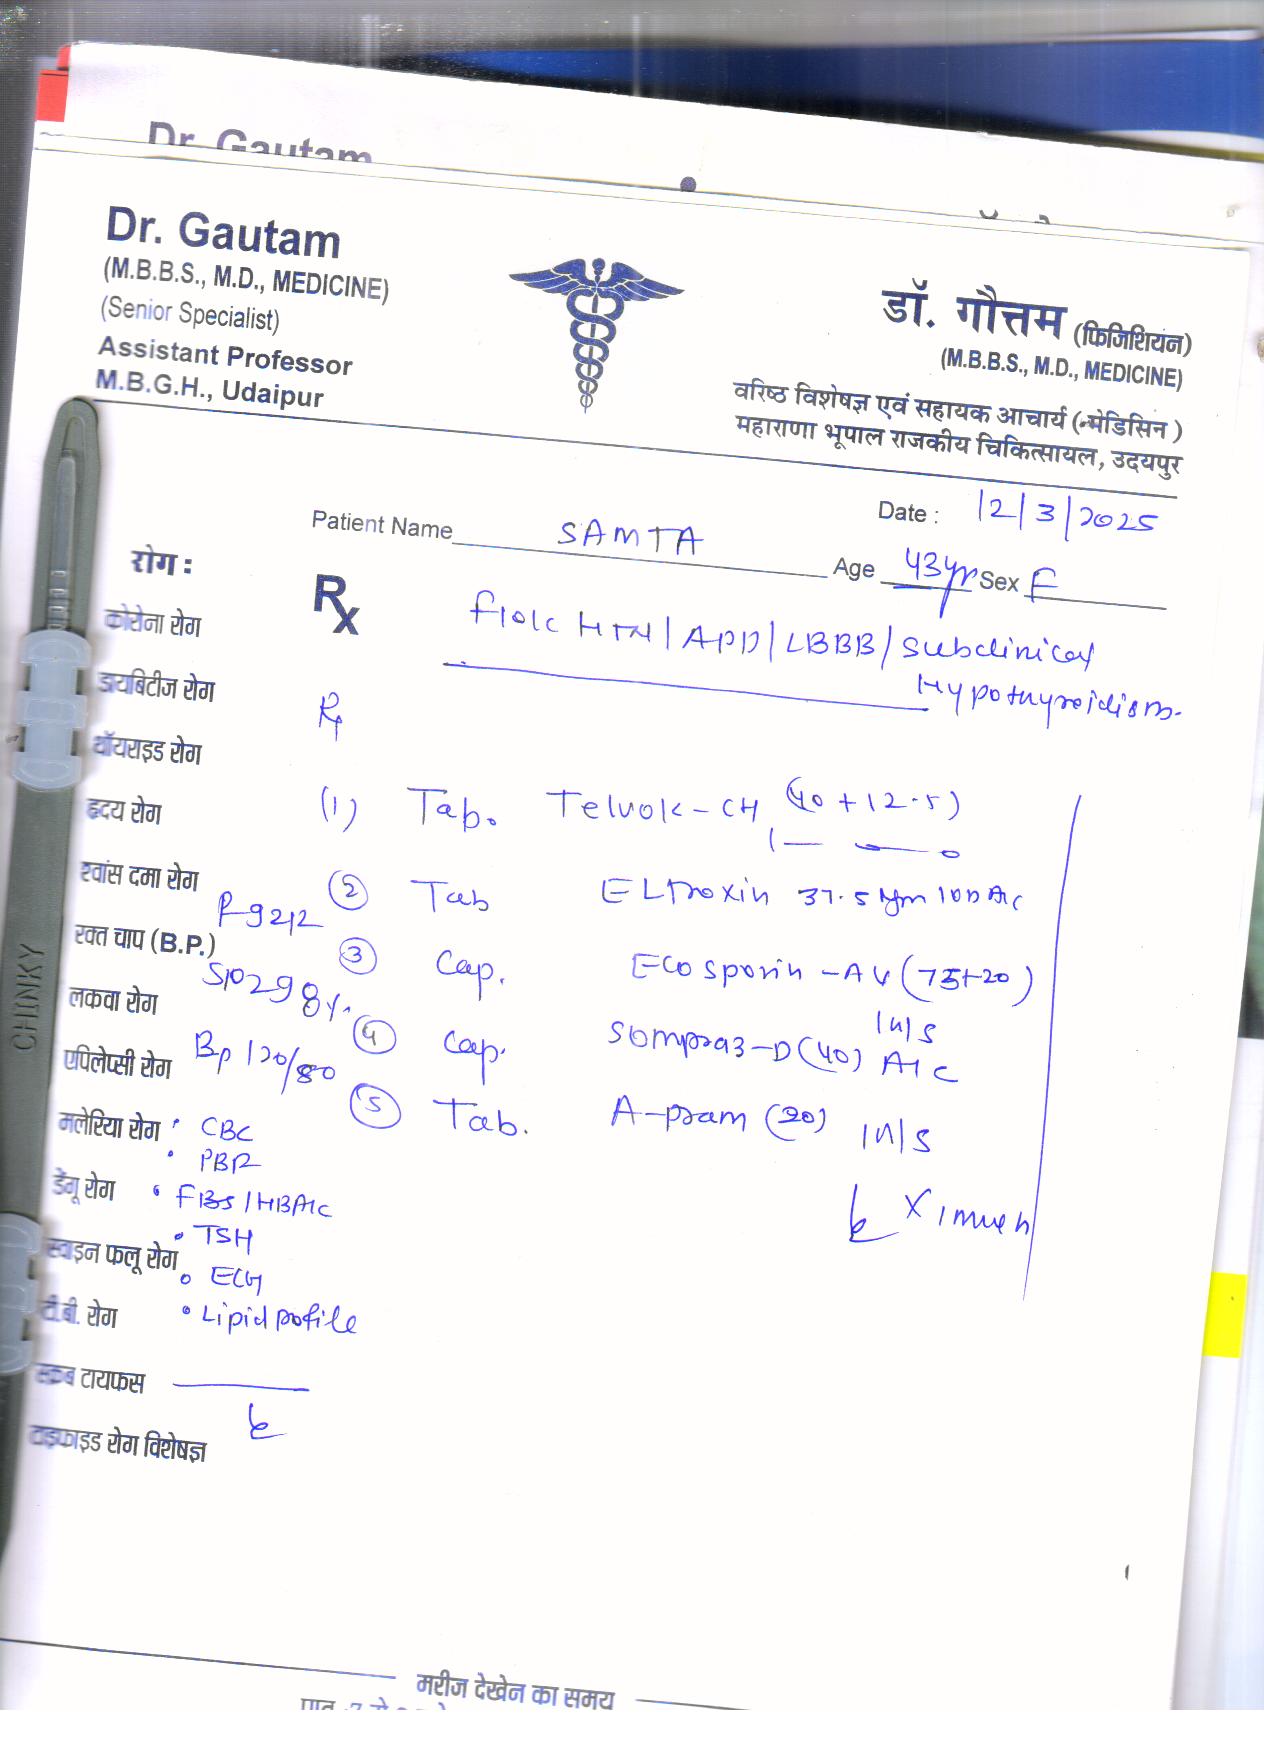 Dr. Gautam
Dr. Gautam
(M.B.B.S., M.D., MEDICINE)
(Senior Specialist)
Assistant Professor
M.B.G.H., Udaipur
डॉ. गौत्तम (फिजिशियन)
(M.B.B.S., M.D., MEDICINE)
वरिष्ठ विशेषज्ञ एवं सहायक आचार्य (मेडिसिन)
महाराणा भूपाल राजकीय चिकित्सायल, उदयपुर
Date : 12/3/2025
Patient Name SAMTA
Age 43yr Sex F
Rx
HTN/APD/LBBB/Subclinical
Hypothyroidism.
(1) Tab. Telvok-CH (40+12.5)
1— — 0
2 Tab ELtroxin 37.5
3 Cap. ECosporin-AV (75+20)
1H/S
4 Cap. Sompraz-D (40) A1C
5 Tab. A-pram (20) 1H/S
X 1
P-92/2
SPO2 98%.
Bp 120/80
• CBC
• FBS/HBA1C
• TSH
• ECG
• Lipid profile
रोग :
कोरोना रोग
डायबिटीज रोग
थॉयराइड रोग
हृदय रोग
श्वांस दमा रोग
रक्त चाप (B.P.)
लकवा रोग
एपिलेप्सी रोग
मलेरिया रोग
डेंगू रोग
स्वाइन फलू रोग
टी.बी. रोग
स्क्रब टायफस
टाइफाइड रोग विशेषज्ञ
मरीज देखेन का समय
CHINKY